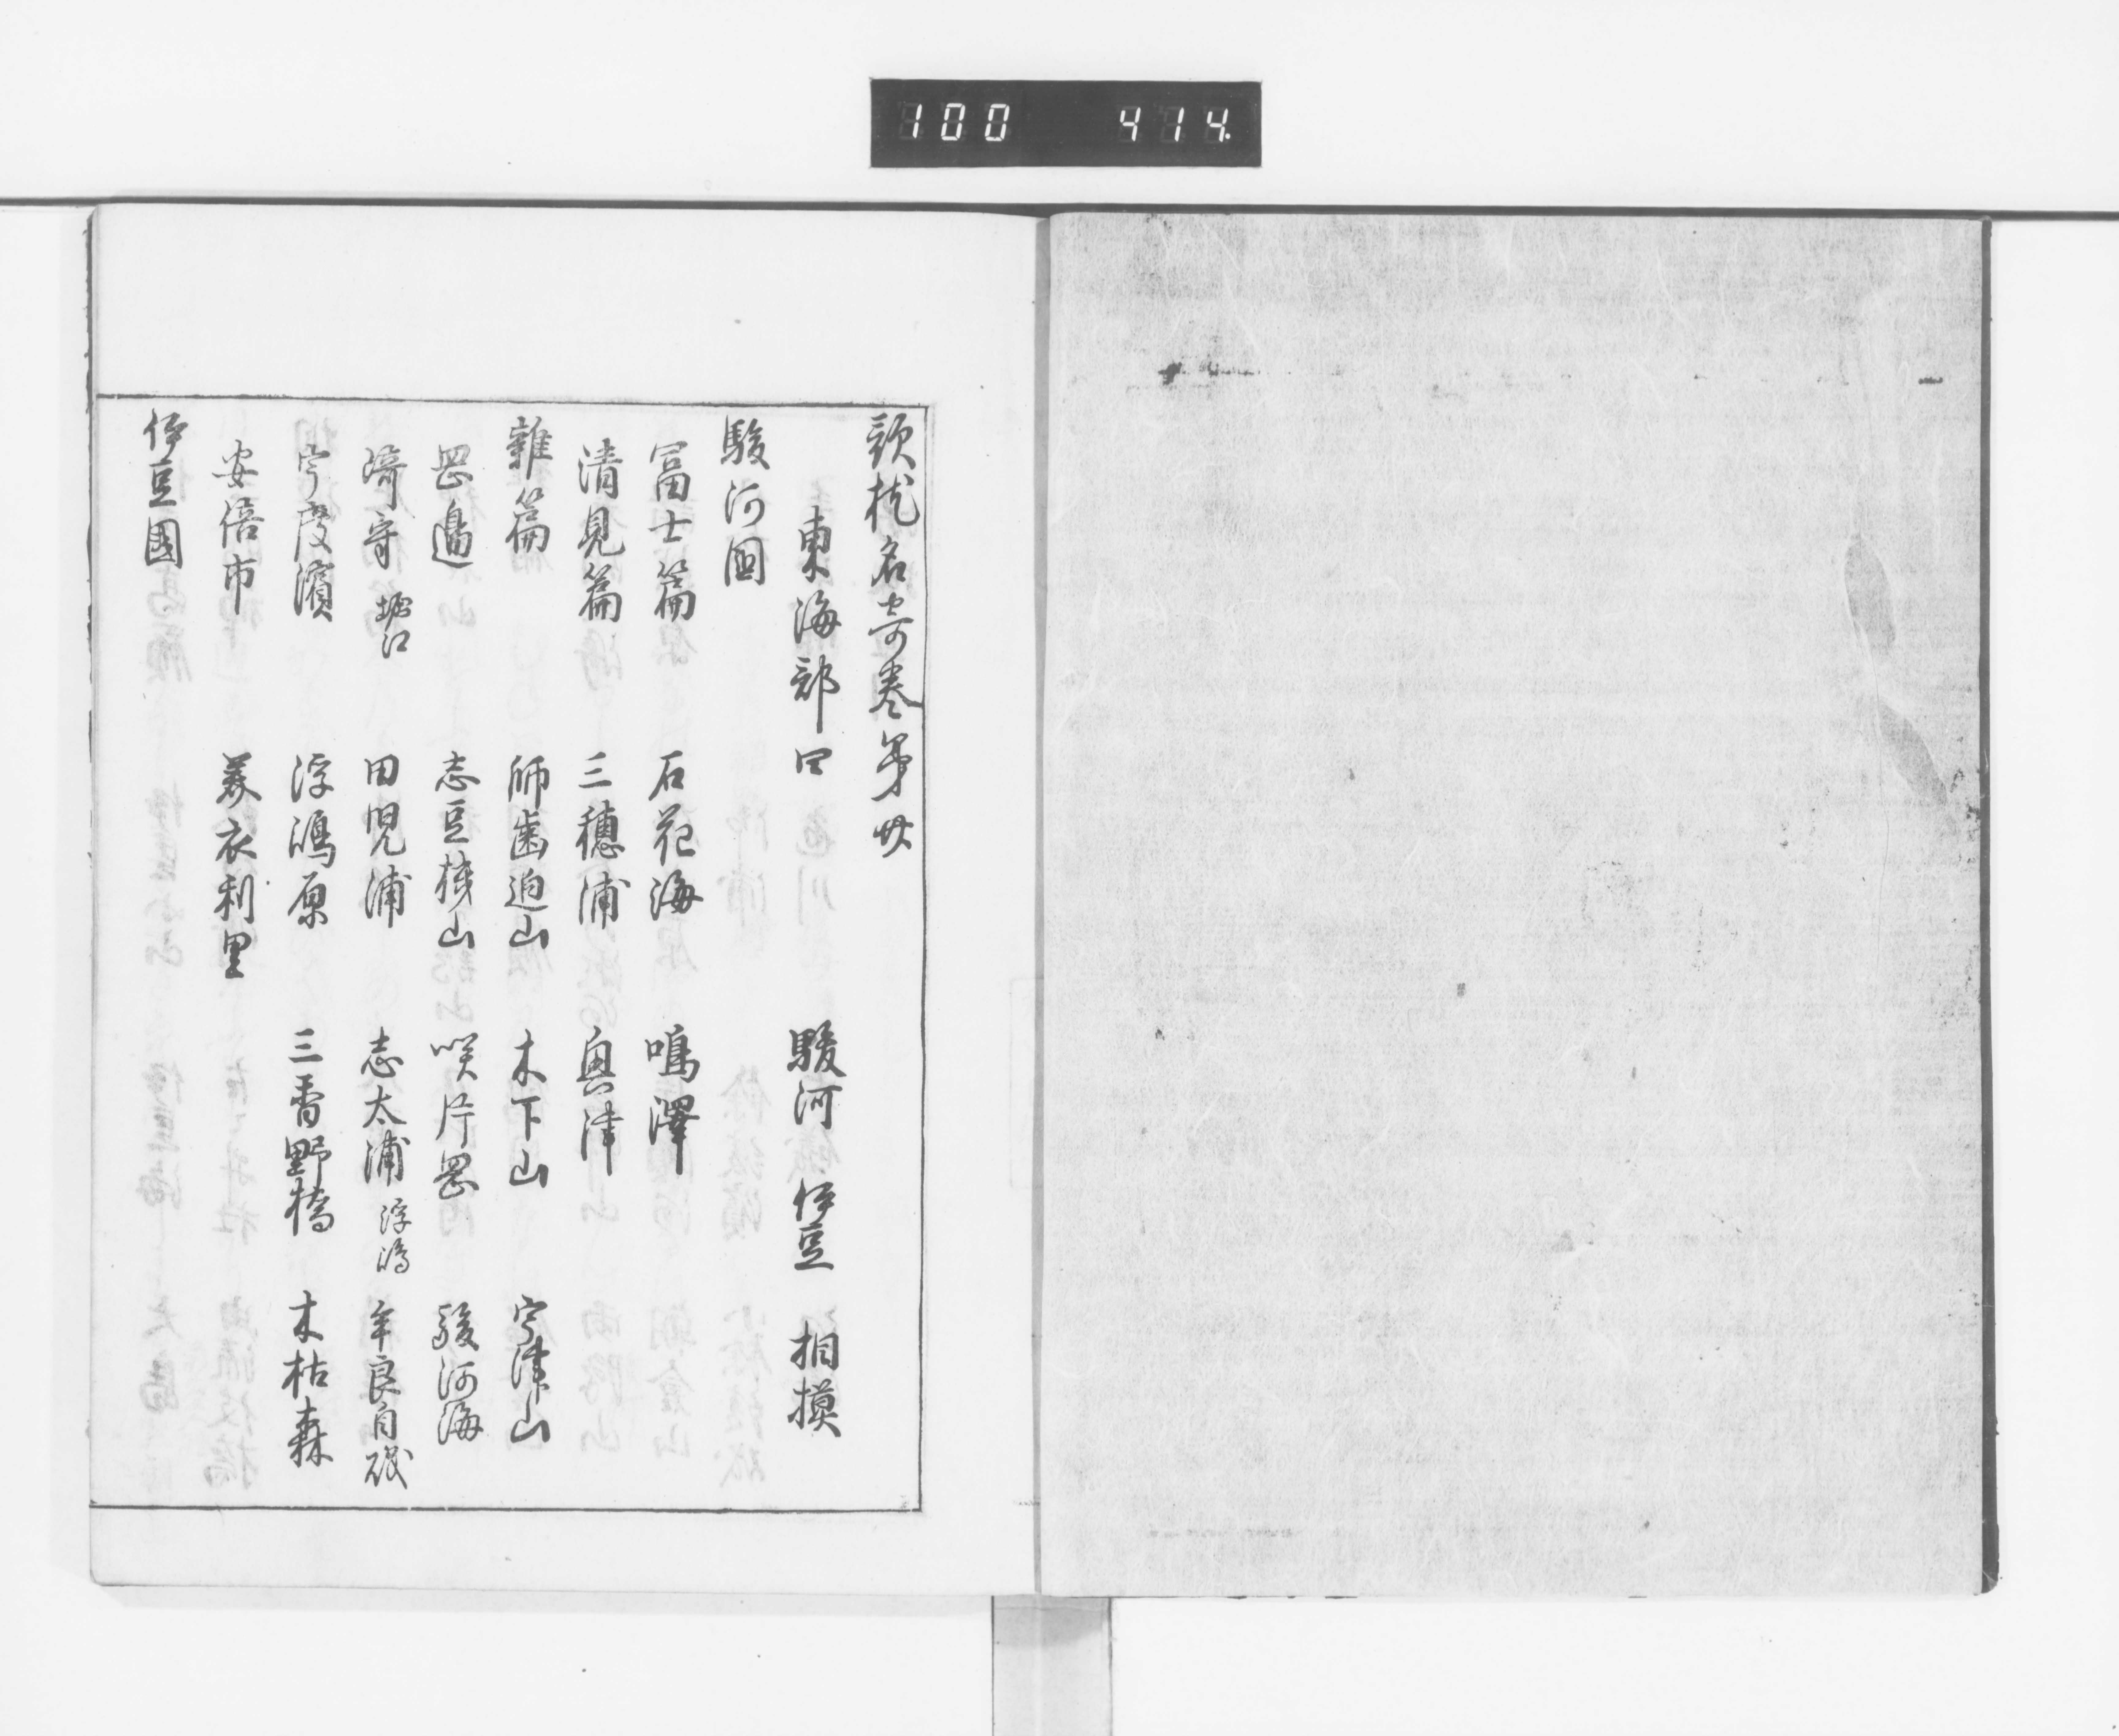 100 414.
歌枕名寄巻第廿
東海部四 駿河 伊豆 相摸
駿河国
冨士篇 石花海 鳴澤
清見篇 三穂浦 興津
雑篇 師歯迫山 木下山 宇津山
岡邊 志豆機山 咲片岡 駿河海
﨑守 堀江 田児浦 志太浦 浮嶋 年良自磯
宇度濱 浮嶋原 三香野橋 木枯森
安倍市 衣利里
伊豆國